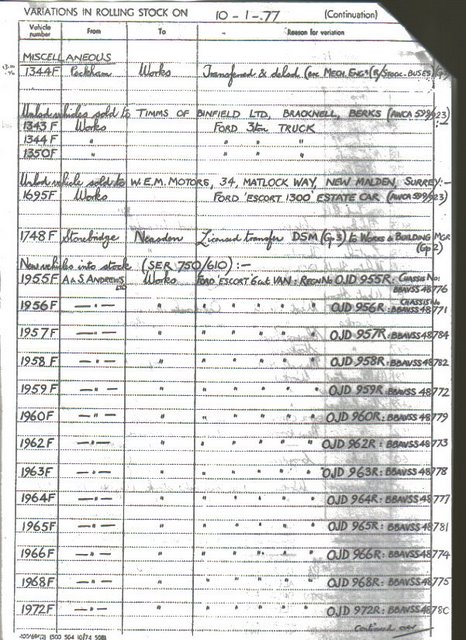 VARIATIONS IN ROLLING STOCK ON 10-1-77 (Continuation)
Vehicle number From To Reason for variation
MISCELLANEOUS
1344F Peckham Works Transferred & delsd (on Mech. Eng's (R/Stock-BUSES)
Unlsd vehicles sold to TIMMS OF BINFIELD LTD, BRACKNELL, BERKS (AWCA 599/923)
1343F Works FORD 3ton TRUCK
1344F " " " "
1350F " " " "
Unlsd vehicle sold to W.E.M. MOTORS, 34, MATLOCK WAY, NEW MALDEN, SURREY:-
1695F Works FORD 'ESCORT 1300' ESTATE CAR (AWCA 599/923)
1748F Stonebridge Neasden Licensed transfer DSM (Gp 3) to Works & Building MGR (Gp 2)
New vehicles into stock (SER 750/610) :-
1955F A & S. ANDREWS LTD Works FORD 'ESCORT' 6cwt VAN: REGN No OJD 955R: CHASSIS No: BBAVSS 48776
1956F —"— " " " " " OJD 956R: CHASSIS No BBAVSS 48771
1957F —"— " " " " " OJD 957R: BBAVSS 48784
1958F —"— " " " " " OJD 958R: BBAVSS 48782
1959F —"— " " " " " OJD 959R: BBAVSS 48772
1960F —"— " " " " " OJD 960R: BBAVSS 48779
1962F —"— " " " " " OJD 962R: BBAVSS 48773
1963F —"— " " " " " OJD 963R: BBAVSS 48778
1964F —"— " " " " " OJD 964R: BBAVSS 48777
1965F —"— " " " " " OJD 965R: BBAVSS 48781
1966F —"— " " " " " OJD 966R: BBAVSS 48774
1968F —"— " " " " " OJD 968R: BBAVSS 48775
1972F —"— " " " " " OJD 972R: BBAVSS 48780
Continued over